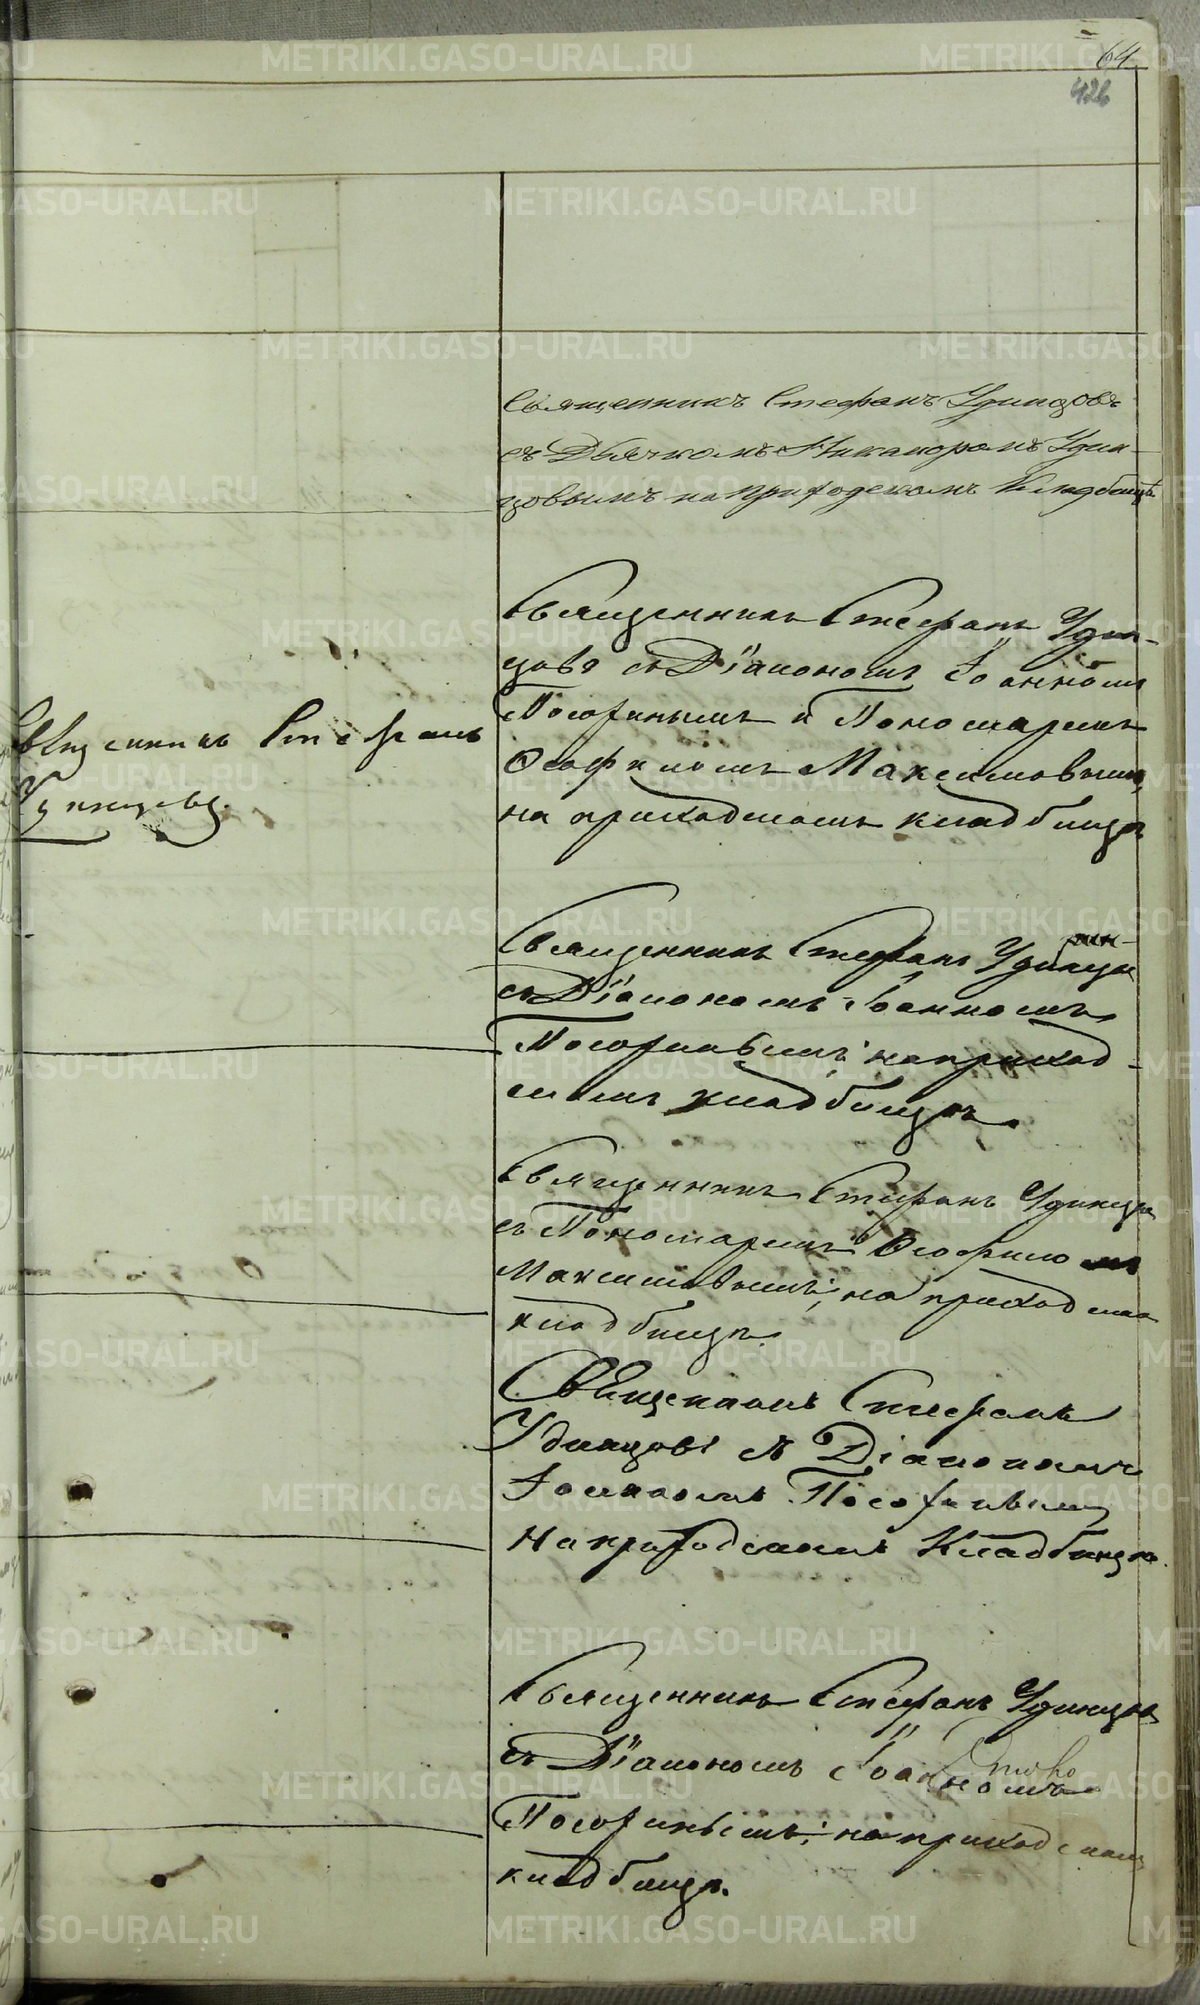 64
426
Священникъ Стефанъ Удинцовъ
съ Дьячкомъ Никаноромъ Удин-
цовымъ на приходскомъ кладбищѣ
Священникъ Стефанъ Удин-
цовъ съ Діакономъ Іоанномъ
и Пономаремъ
Ѳеофиломъ Максимовымъ,
на приходскомъ кладбищѣ
Священникъ Стефанъ
Удинцовъ.
Священникъ Стефанъ Удинцов
съ Діакономъ Іоанномъ
на приход-
скомъ кладбищѣ.
Священникъ Стефанъ Удинцов
съ Пономаремъ Ѳеофиломъ
Максимовымъ, на приходском
кладбищѣ.
Священникъ Стефанъ
Удинцовъ съ Діакономъ
Іоанномъ
на приходскомъ Кладбищѣ.
Священникъ Стефанъ Удинцов
съ Діакономъ Іоанномъ
на приходском
кладбищѣ.
METRIKI.GASO-URAL.RU